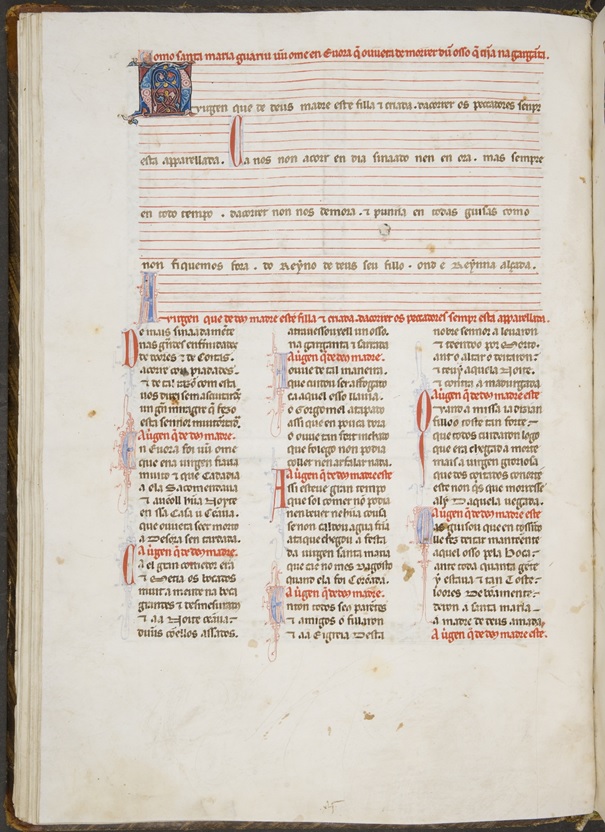 Como santa maria guariu ũu ome en Euora q̃ ouuera de morrer dũu osso q̃ tĩia na garganta.
Uirgen que de deus madre este filla τ criada. dacorrer os peccadores senpr
esta apparellada. Ca nos non acorr en dia sinaado nen en ora. mas sempre
en todo tempo . dacorrer non nos demora . τ punna en todas guisas como
non fiquemos fora . do Reyno de deus seu fillo . ond e Reynna alçada .
A uirgen que de deus madre este filla τ criada . dacorrer os peccadores sempr esta apparellada.
De mais sinaadamente
nas grãdes enfirmidades
de doores τ de coitas.
acorre con piadades
esta sennor muit onrrada.
A uirgen q̃ de deus madre.
En Euora foi ũu ome
que ena uirgen fiaua
muito τ que cada dia
a ela s acomendaua
τ aueoll hũa noyte
en ssa casa u ceaua.
que ouuera seer morto
a desora sen tardada.
A uirgen q̃ de deus madre.
Ca el gran comedor era
τ metia os bocados
muit a meude na boca
grandes τ desmesurados
τ aa noite ceaua
dũus cõellos assados.
atrauessouxell un osso.
na garganta τ sarrada
A uirgen q̃ de deus madre.
Ouue de tal maneira.
que cuidou seer affogado
ca aquel osso llauia.
o gorgomel atapado
assi que en pouca dora
o ouue tan fort inchado
que folego non podia
coller nen ar falar nada.
A uirgen q̃ de deus madre este
Assi esteue gran tempo
que sol comer nõ podia
nen beuer nehũa cousa
se non caldo ou agua fria
ata que chegou a festa
da uirgen santa maria
que cae no mes dagosto
quand ela foi corõada.
A uirgen q̃ de deus madre.
Enton todos seus parentes
τ amigos o fillaron
τ aa eigreia desta
nobre sennor a leuaron
τ tendo o por morto.
ant o altar o deitaron .
τ teuy aquela noite.
τ contra a madurgada
A uirgen q̃ de deus madre este
que todos cuidaron logo
que era chegada a morte
mais a uirgen groriosa
que dos coitados conorte
este non q̃s que morresse
aly daquela uegada.
A uirgen q̃ de deus madre este
Mas guisou que en tossindo
lle fez deitar manteente
aquel osso pela boca .
ante toda quanta gente
y estaua τ tan toste .
loores de boamente .
deron a santa maria
a madre de deus amada.
A uirgen q̃ de deus madre este.